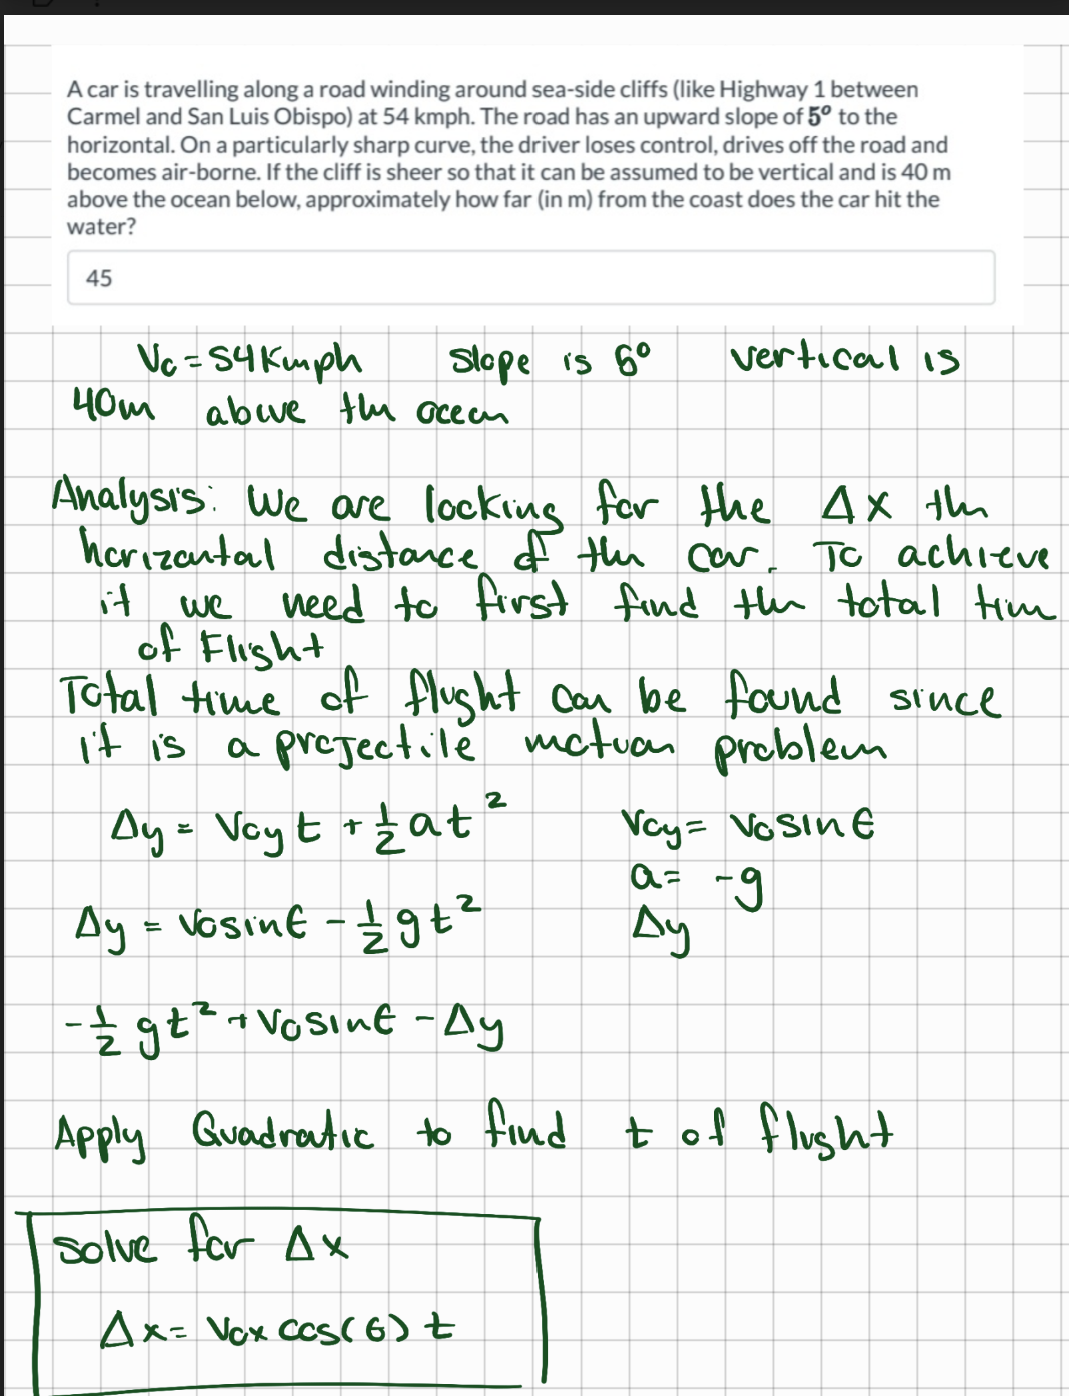 A car is travelling along a road winding around sea-side cliffs (like Highway 1 between
Carmel and San Luis Obispo) at 54 kmph. The road has an upward slope of 5° to the
horizontal. On a particularly sharp curve, the driver loses control, drives off the road and
becomes air-borne. If the cliff is sheer so that it can be assumed to be vertical and is 40 m
above the ocean below, approximately how far (in m) from the coast does the car hit the
water?
45
V₀ = 54 Kmph slope is 6° vertical is
40m above the ocean
Analysis: We are looking for the Δx the
horizontal distance of the car. To achieve
it we need to first find the total time
of Flight
Total time of flight can be found since
it is a projectile motion problem
Δy = V₀y t + ½ a t² V₀y = V₀ sin θ
a = -g
Δy = V₀ sin θ - ½ g t² Δy
-½ g t² + V₀ sin θ - Δy
Apply Quadratic to find t of flight
solve for Δx
Δx = V₀x cos(θ) t